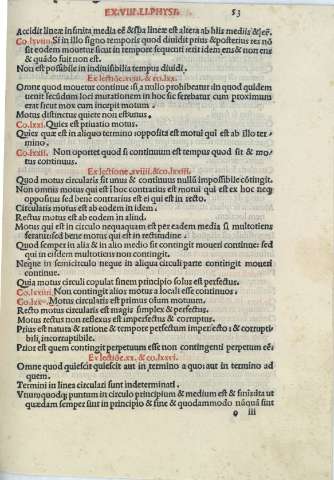 EX.VIII.LI.PHYSI.
53
Accidit lineæ infinita media eē & ista lineæ est altera ab his mediis & ect.
Co.lxviii. Si in illo signo temporis quod diuidit prius & posterius res nō
sit eodem mouetur sicut in tempore sequenti rē it idem ens & non ens
& quādo fuit non est.
Non est possibile in indiuisibilia tempus diuidi.
Ex lectiōe.xviii. & co.lxx.
Omne quod mouetur continue si a nullo prohibeatur in quod quidem
uenit secūdum loci mutationem in hoc sic ferebatur cum proximum
erat sicut mox cum incepit motum.
Motus distinctus quiete non est unus.
Co.lxxi. Quies est priuatio motus.
Quies quæ est in aliquo termino opposita est motui qui est ab illo ter-
mino.
Co.lxxii. Non oportet quod si continuum est tempus quod sit & mo-
tus continuus.
Ex lectione.xviiii. & co.lxxiii.
Quod motus circularis sit unus & continuus nullū impossibile cōtingit.
Non omnis motus qui est i hoc contrarius est motui qui ex hoc neq
oppositus sed bene contrarius est ei qui est in recto.
Circularis motus est ab eodem in idem.
Rectus motus est ab eodem in aliud.
Motus qui est in circulo nequaquam est per eadem media si multotiens
feratur sed bene motus qui est in rectitudine.
Quod semper in alia & in alio medio sit contingit moueri continue: sed
qui in eisdem multotiens non contingit.
Neque in semicirculo neque in aliqua circuli parte contingit moueri
continue.
Quia motus circuli copulat finem principio solus est perfectus.
Co.lxxiiii. Non contingit alior motus a locali esse continuos:
Co.lxxv. Motus circularis est primus oīum motuum.
Recto motus circularis est magis simplex & perfectus.
Motus rectus non reflexus est imperfectus & corruptus.
Prius est natura & ratione & tempore perfectum imperfecto: & corrupti-
bili, incorruptibile.
Prior est quem contingit perpetuum esse non contingenti perpetum eē:
Ex lectiōe.xx. & co.lxxvi.
Omne quod quiescit quiescit aut in termino a quo: aut in termino ad
quem.
Termini in linea circulari sunt indeterminati.
Vnumquodq; punctum in circulo principium & medium est & finis: ita ut
quædam semper sint in principio & fine & quodammodo nūquā sint
g iii